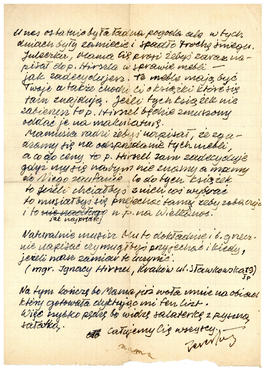 U nas ostatnio była ładna pogoda ale w tych
dniach były zamiecie i spadło trochę śniegu.
Mama Cię prosi żebyś zaraz na-
pisał do p. Hirszla w sprawie mebli -
jak zadecydujesz. Te meble mają być
Twoje a także chodzi o książki które się
tam znajdują. Jeśli tych książek nie
zabierzesz to p. Hirszel będzie zmuszony
oddać je na makulaturę.
Mamusia radzi żebyś napisał, że zga-
dzamy się na odsprzedanie tych mebli,
a co do ceny to p. Hirszel sam zadecyduje
gdyż my się na tym nie znamy a mamy
do Niego zaufanie. A co do tych książek
to jeśli chciałbyś z nich coś wybrać
to musiałbyś przyjechać tamtej żeby zobaczyć
i to n.p. na Wielkanoc.
Naturalnie musisz Mu to dokładnie i grzecz-
nie napisać czy mógłbyś przyjechać i kiedy,
jeżeli masz zamiar to uczynić.
(mgr. Ignacy Hirszel, Kraków ul. Sławkowska
Na tym kończę bo Mama już woła mnie na obiad
który gotowała dyktując mi ten list.
Więc szybko pędzę bo widzę salaterkę z pyszną
sałatką.
Całujemy Cię wszyscy
mama